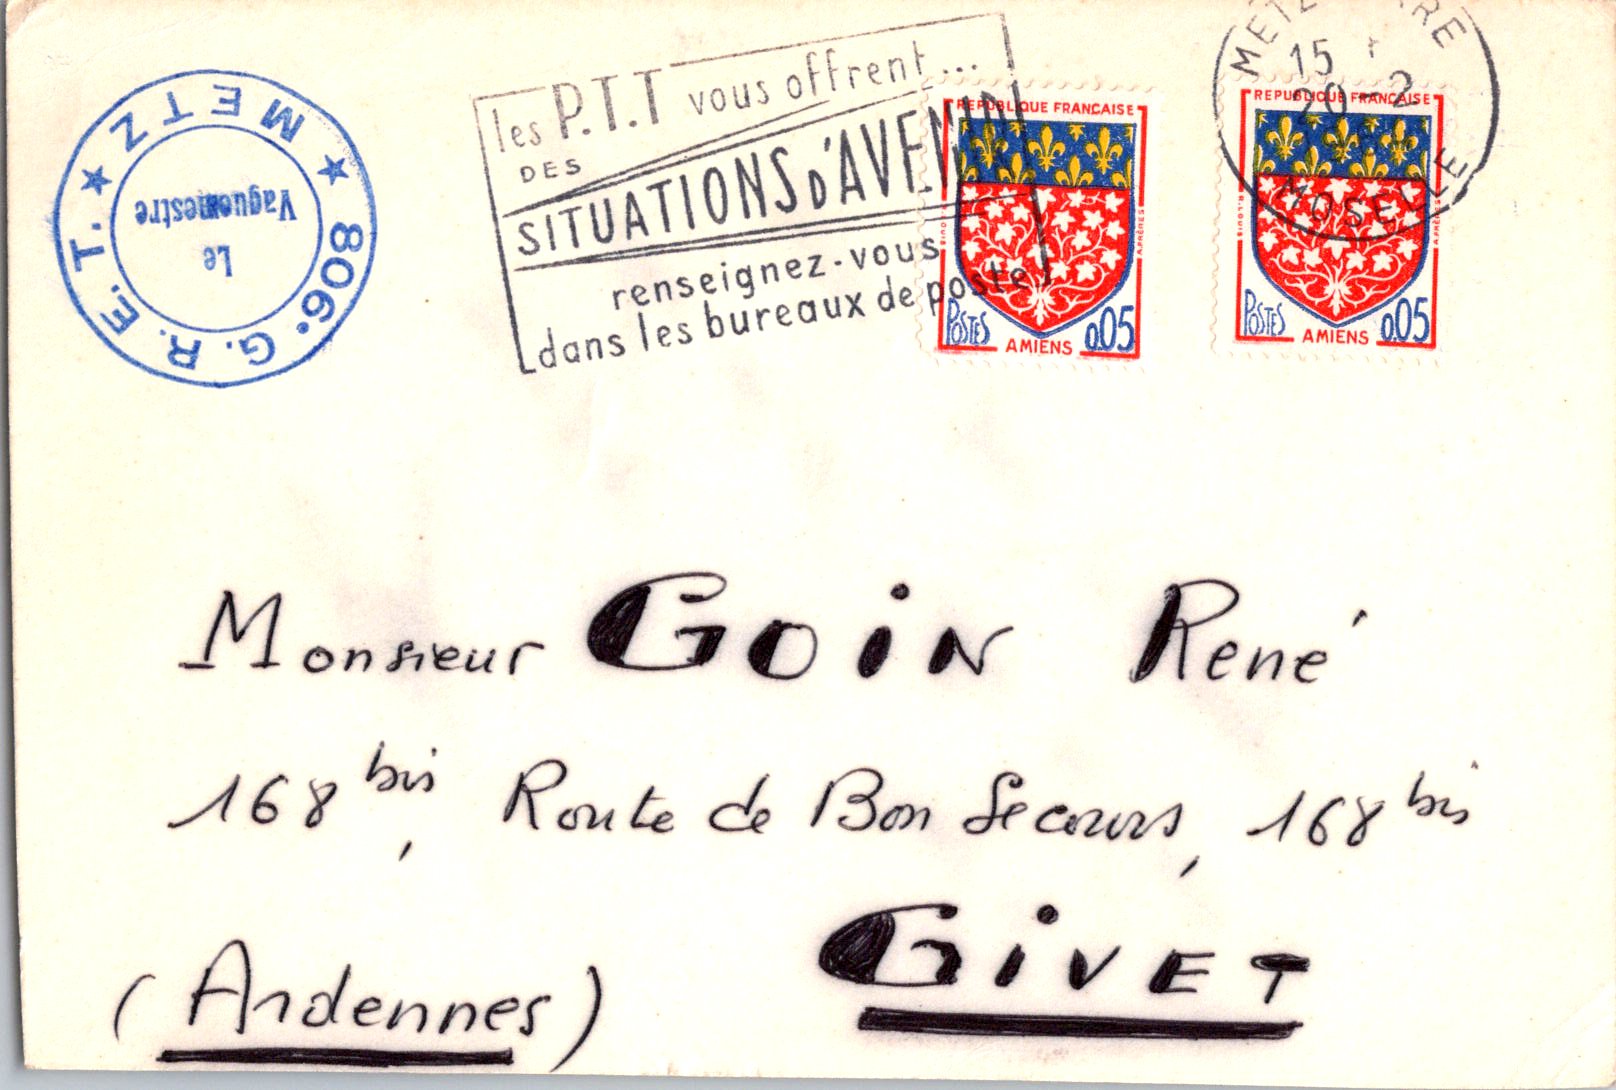 ★ 806e G. R. E. T. ★ METZ
Le
Vaguemestre
les P.T.T vous offrent...
DES
SITUATIONS D'AVENIR
renseignez-vous
dans les bureaux de poste
REPUBLIQUE FRANÇAISE
POSTES
AMIENS
0.05
REPUBLIQUE FRANÇAISE
POSTES
AMIENS
0.05
METZ GARE
15
20-2
MOSELLE
Monsieur GOIN René
168 bis, Route de Bon Secours, 168 bis
GIVET
(Ardennes)